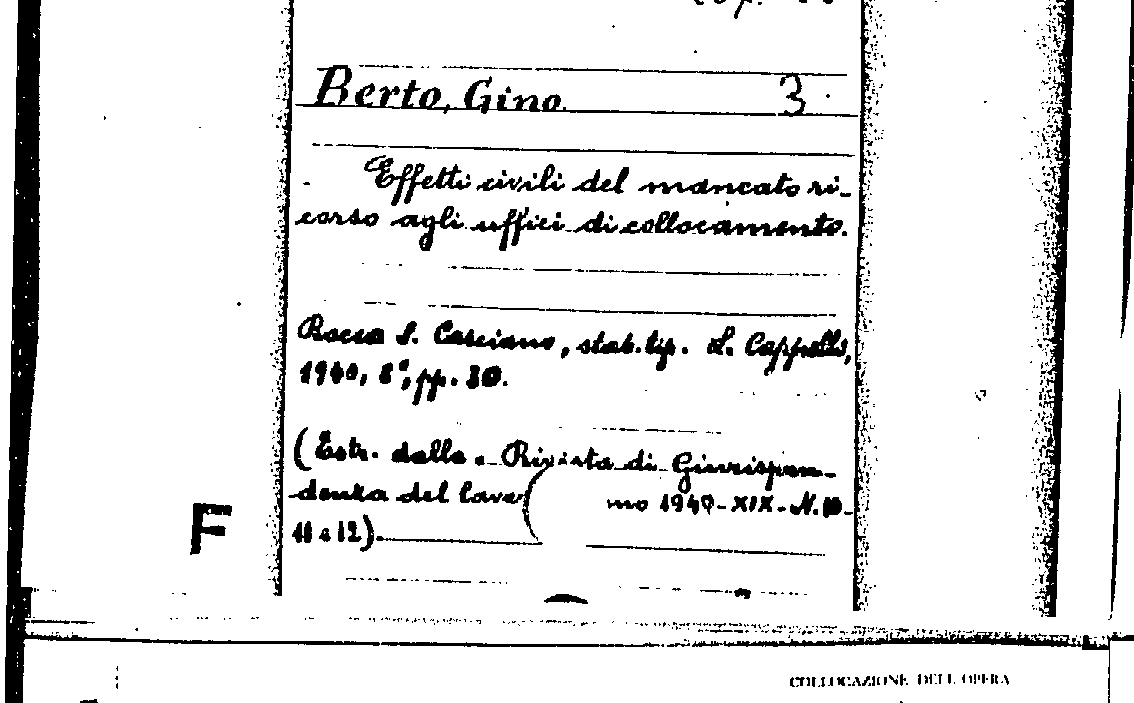 Berto, Gino 3
Effetti civili del mancato ri-
corso agli uffici di collocamento.
Rocca S. Casciano, stab. tip. L. Cappelli,
1940, 8°, pp. 30.
(Estr. dalla « Rivista di Giurispru-
denza del lavo no 1940-XIX-N. 10-
11 e 12).
F
COLLOCAZIONE DELL'OPERA